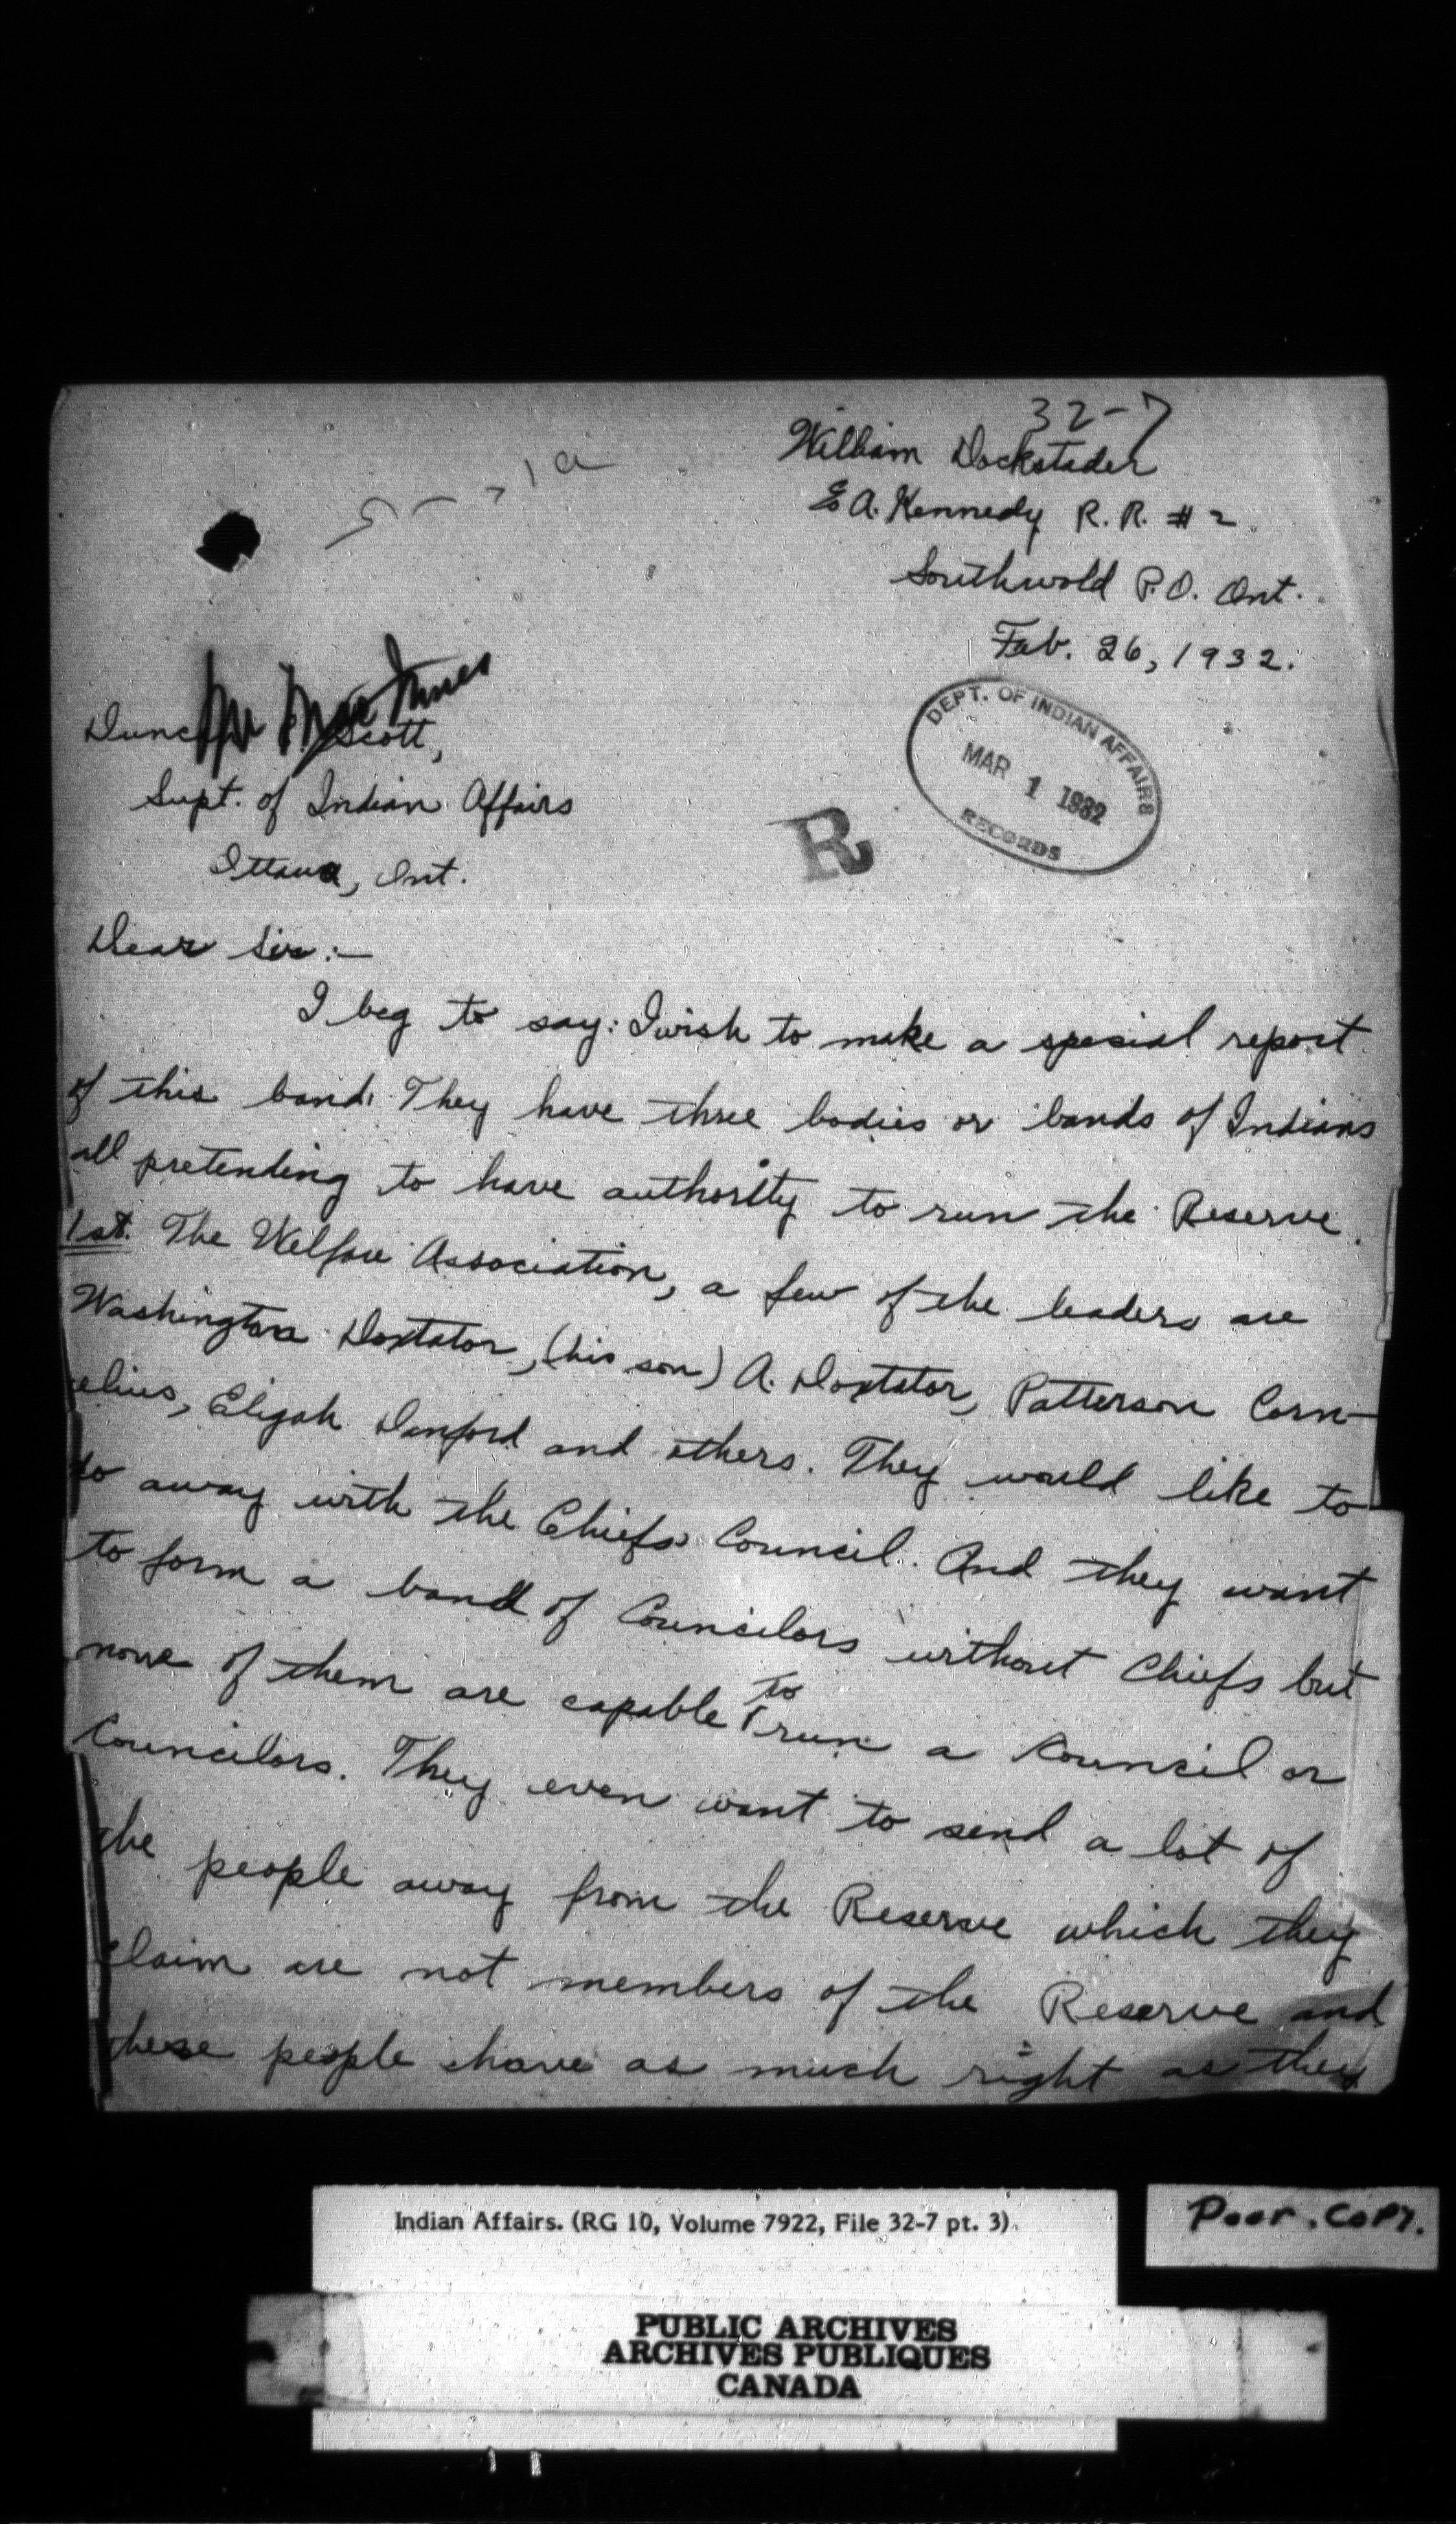 32-7
William Dockstader
c/o A. Kennedy R. R. # 2.
Southwold P.O. Ont.
Feb. 26, 1932.
Mr Mac Innes
Duncan Scott,
Supt. of Indian Affairs
Ottawa, Ont.
DEPT. OF INDIAN AFFAIRS
MAR 1 1932
RECORDS
R
Dear Sir:—
I beg to say: I wish to make a special report
of this band. They have three bodies or bands of Indians
all pretending to have authority to run the Reserve.
1st. The Welfare Association, a few of the leaders are
Washington Doxtator, (his son) A. Doxtator, Patterson Corn-
elius, Elijah Danford and others. They would like to
do away with the Chiefs Council. And they want
to form a band of Councilors without Chiefs but
none of them are capable to run a Council or
Councilors. They even want to send a lot of
the people away from the Reserve which they
claim are not members of the Reserve and
these people have as much right as they
Indian Affairs. (RG 10, Volume 7922, File 32-7 pt. 3).
Poor. Copy.
PUBLIC ARCHIVES
ARCHIVES PUBLIQUES
CANADA